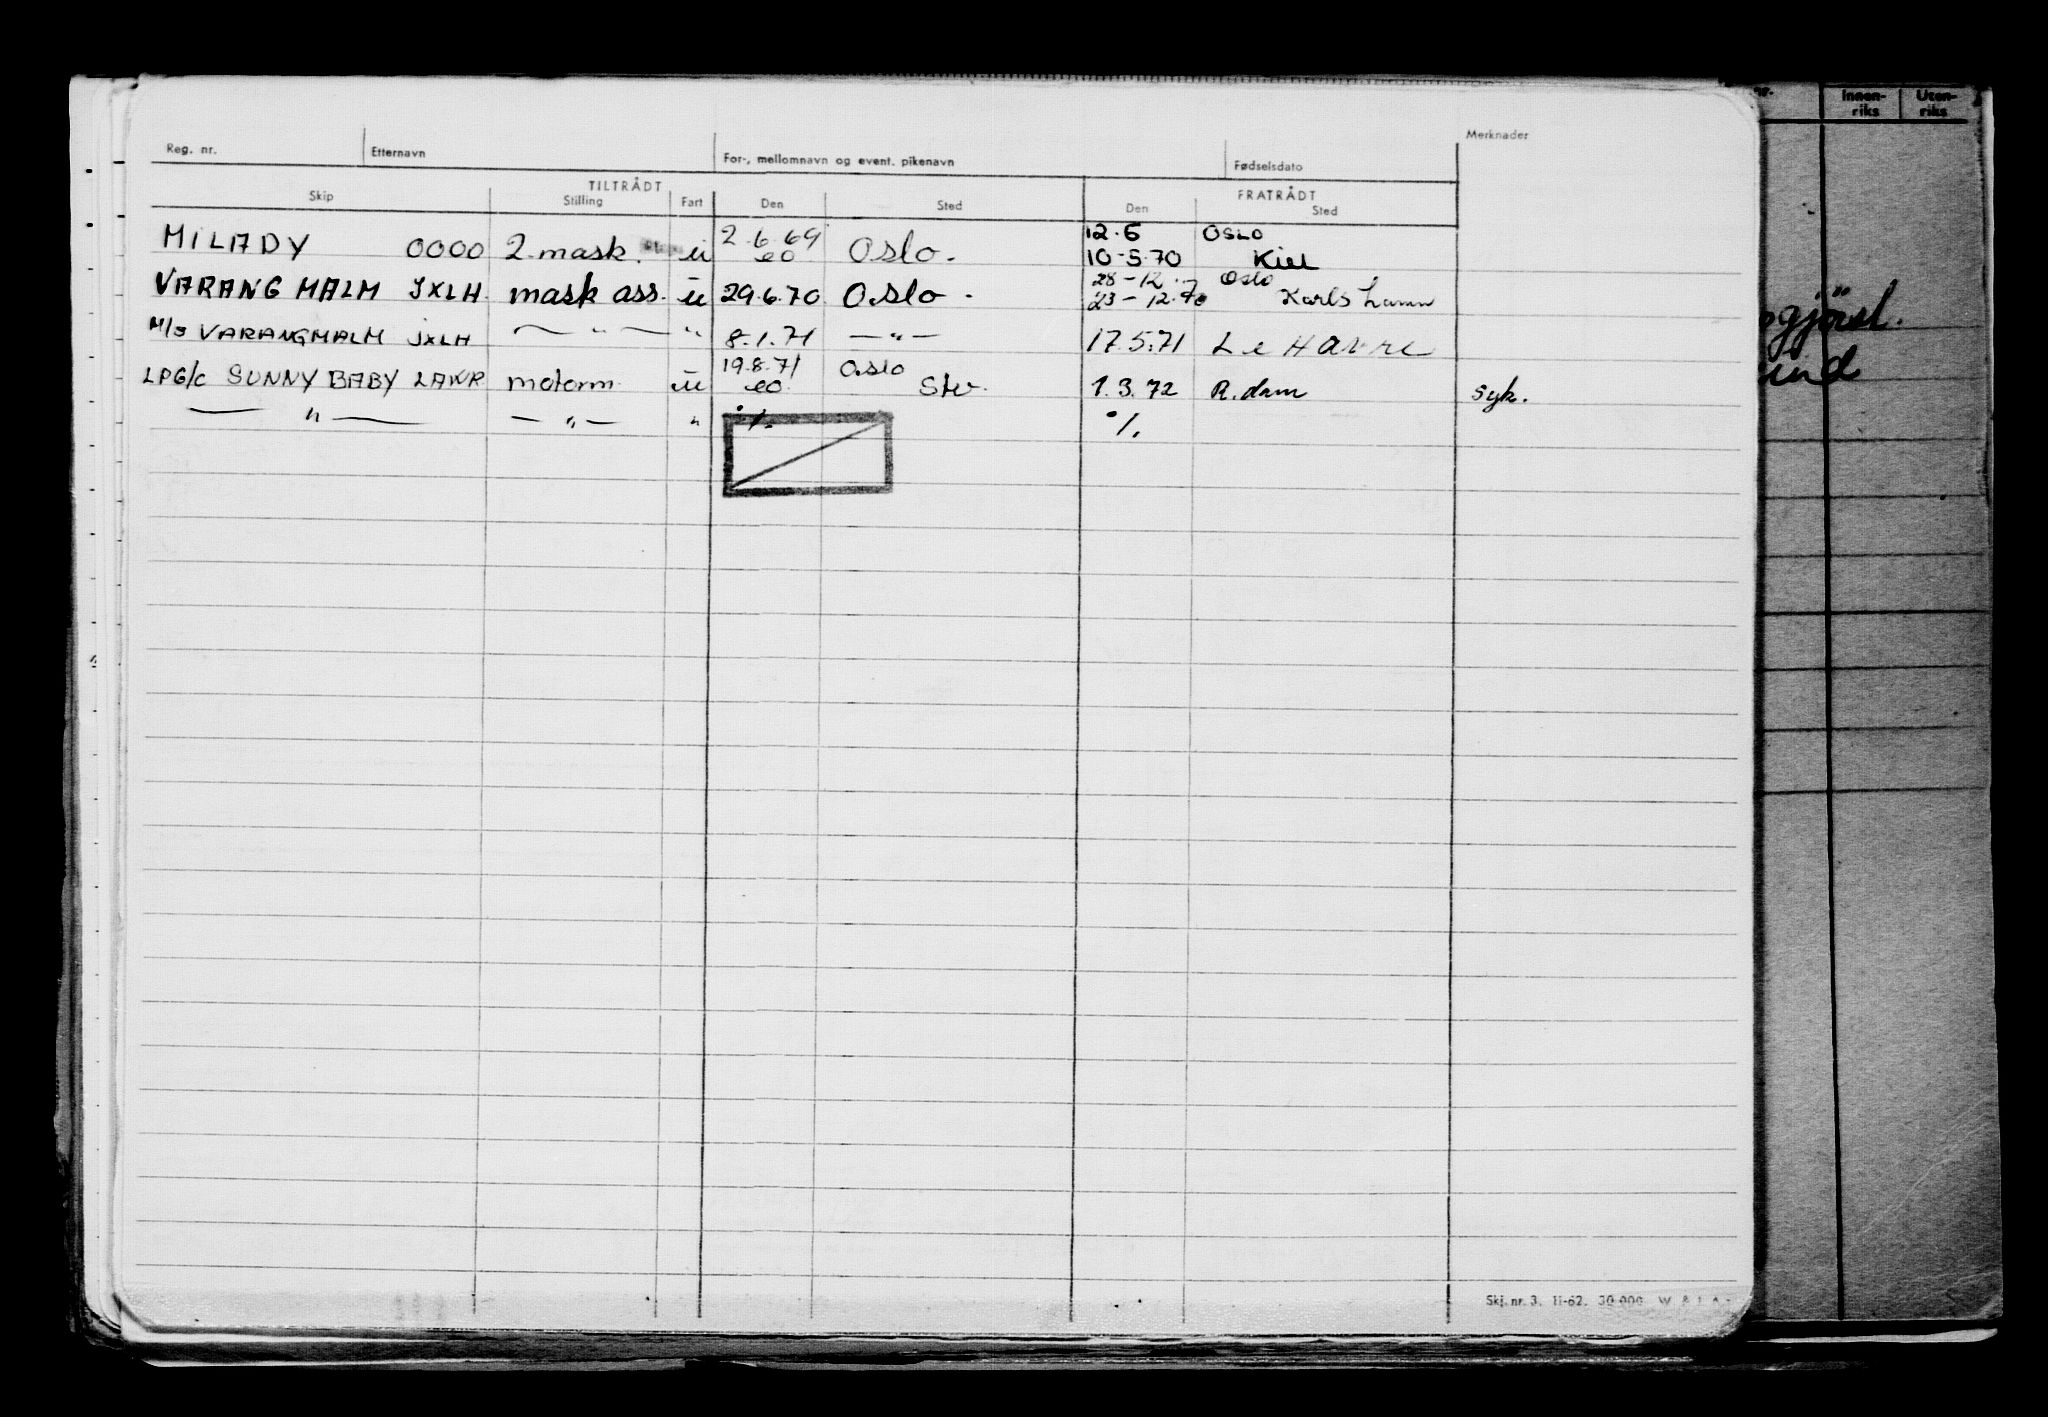 Reg. nr. Etternavn For-, mellomnavn og event. pikenavn Fødselsdato Merknader
TILTRÅDT FRATRÅDT
Skip Stilling Fart Den Sted Den Sted
MILADY OOOO 2. mask. u 2.6.69 Oslo. 12.6 OSLO
eo 10-5-70 Kiel
VARANG MALM JXLH mask ass. u 29.6.70 Oslo. 28-12 Oslo
23-12.70 Karlshamn
M/S VARANGMALM JXLH — " — " 8.1.71 — " — 17.5.71 Le Havre
LPG/C SUNNY BABY LAWR motorm. u 19.8.71 Oslo
eo. Stv. 1.3.72 R.dam syk.
— " — — " — " ./. ./.
Skj. nr. 3. 11-62. 30 000.
nr. Innen-riks Uten-riks